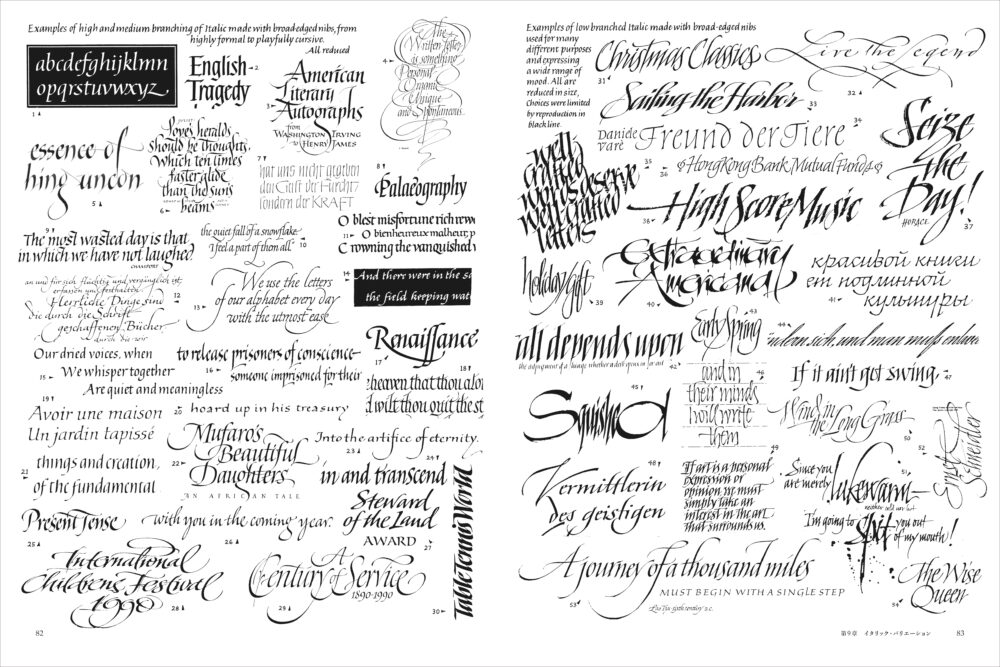 Examples of high and medium branching of Italic made with broad edged nibs, from
highly formal to playfully cursive.
All reduced
abcdefghijklmn
opqrstuvwxyz
1
English
Tragedy
2
American
Literary
Autographs
from
WASHINGTON IRVING
to HENRY JAMES
3
The
Written Letter
is something
Personal
Organic
Unique
and Spontaneous.
4
essence of
hing uncon
5
love's heralds
should be thoughts,
which ten times
faster glide
than the sun's
beams
6
7
hat uns nicht gegeben
den Geist der Furcht
sondern der KRAFT
8
Palaeography
The most wasted day is that
in which we have not laughed.
9
the quiet fall of a snowflake
I feel a part of them all
10
O blest misfortune rich rew
O bienheureux malheur, p
Crowning the vanquished
11
an und für sich flüchtig und vergänglich ist,
erfassen und festhalten
Herrliche Dinge sind
die durch die Schrift
geschaffenen Bücher
durch die wir
12
We use the letters
of our alphabet every day
with the utmost ease
13
14
And there were in the sa
the field keeping wat
Our dried voices, when
We whisper together
Are quiet and meaningless
15
to release prisoners of conscience
someone imprisoned for their
16
Renaissance
17
18
heaven that thou alo
d wilt thou quit the st
19
Avoir une maison
Un jardin tapissé
20
hoard up in his treasury
things and creation,
of the fundamental
21
Mufaro's
Beautiful
Daughters
AN AFRICAN TALE
22
Into the artifice of eternity.
23
in and transcend
24
Present Tense
25
with you in the coming year.
26
Steward
of the Land
AWARD
27
International
Children's Festival
1990
28
A
Century of Service
1890-1990
29
Table Tennis World
30
82
Examples of low branched Italic made with broad-edged nibs
used for many
different purposes
and expressing
a wide range of
mood. All are
reduced in size,
Choices were limited
by reproduction in
black line.
Christmas Classics
31
Live the Legend
32
Sailing the Harbor
33
Daniele
Varè
Freund der Tiere
34
35
well
crafted
words deserve
well-crafted
letters
36
Hong Kong Bank Mutual Funds
Seize
the
Day!
HORACE
37
36
High Score Music
holiday gift
39
Extraordinary
Americana
40
красивой книги
ет подлинной
культуры
41
all depends upon
42
Early Spring
43
44
indem sich und man muß
Squished
45
and in
their minds
I will write
them
46
If it ain't got swing,
47
Wind in
the Long Grass
50
Ernst
Schneidler
52
48
Vermittlerin
des geistigen
49
If art is a personal
expression of
opinion we must
simply take an
interest in the art
that surrounds us.
Since you
are merely
lukewarm
51
I'm going to
spit
you out
of my mouth!
A journey of a thousand miles
MUST BEGIN WITH A SINGLE STEP
Lao Tsu sixth century B.C.
53
The Wise
Queen
54
第9章 イタリック・バリエーション
83